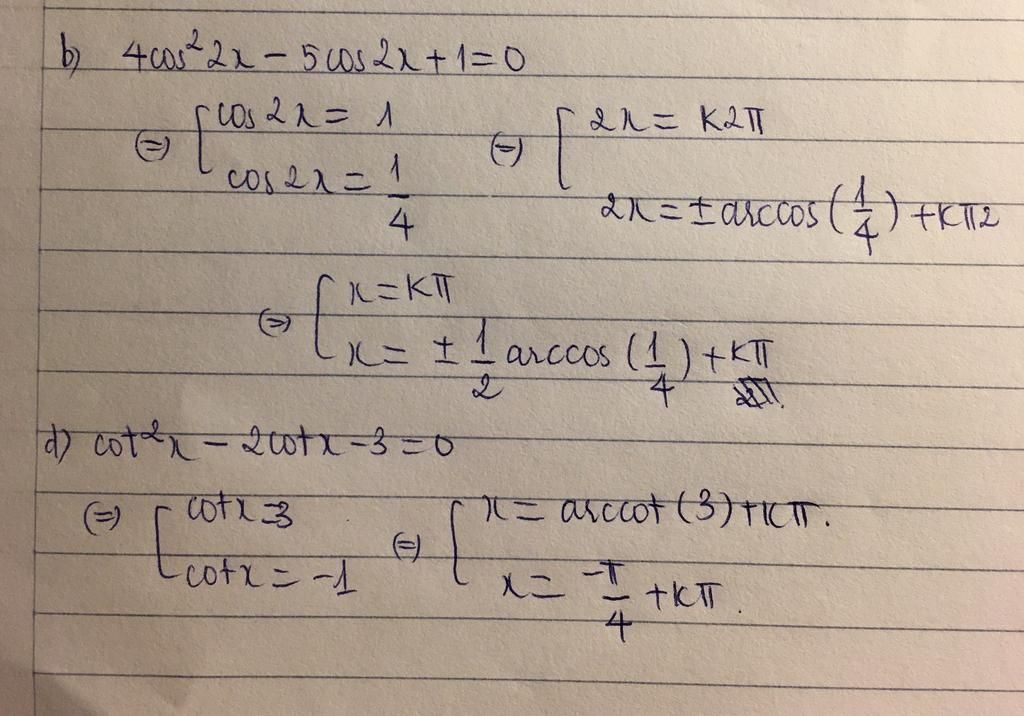 b) 4cos²2x − 5cos2x + 1 = 0
⇔ [ cos2x = 1 ⇔ [ 2x = k2π
cos2x = 1/4 2x = ± arccos(1/4) + kπ2
⇔ [ x = kπ
x = ± 1/2 arccos(1/4) + kπ
d) cot²x − 2cotx − 3 = 0
⇔ [ cotx = 3 ⇔ [ x = arccot(3) + kπ.
cotx = −1 x = −π/4 + kπ.